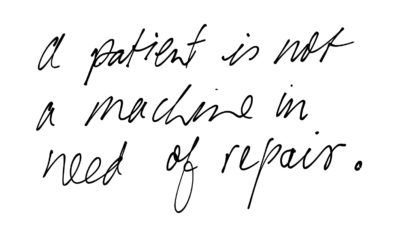 a patient is not
a machine in
need of repair.